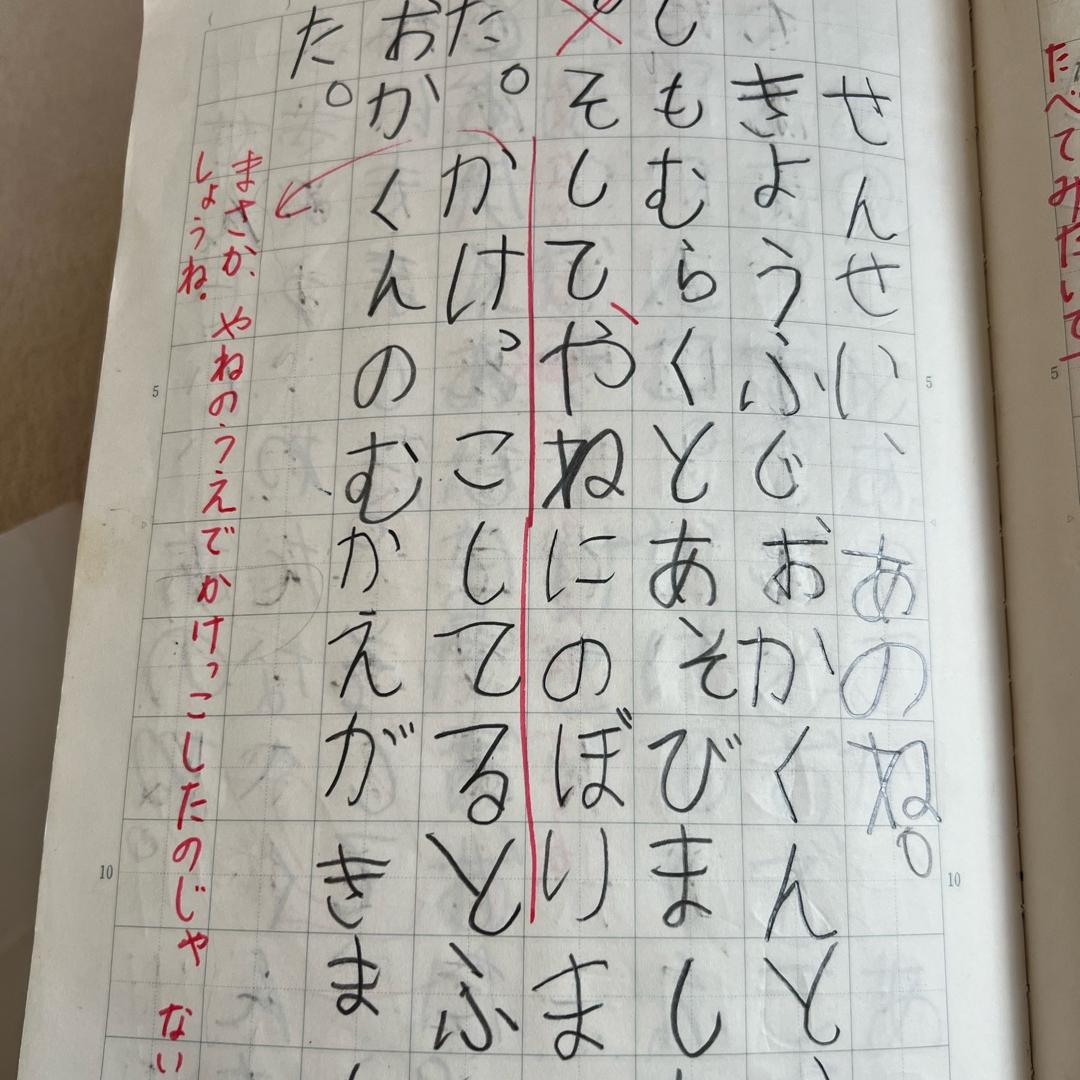 たべてみたいで
せんせい、あのね。
きようふじおかくんと
しもむらくとあそびまし
そしてやねにのぼりま
た。かけっこしてるとふ
おかくんのむかえがきま
た。
まさか、やねのうえでかけっこしたのじゃ ない
しょうね。
5
5
5
10
10